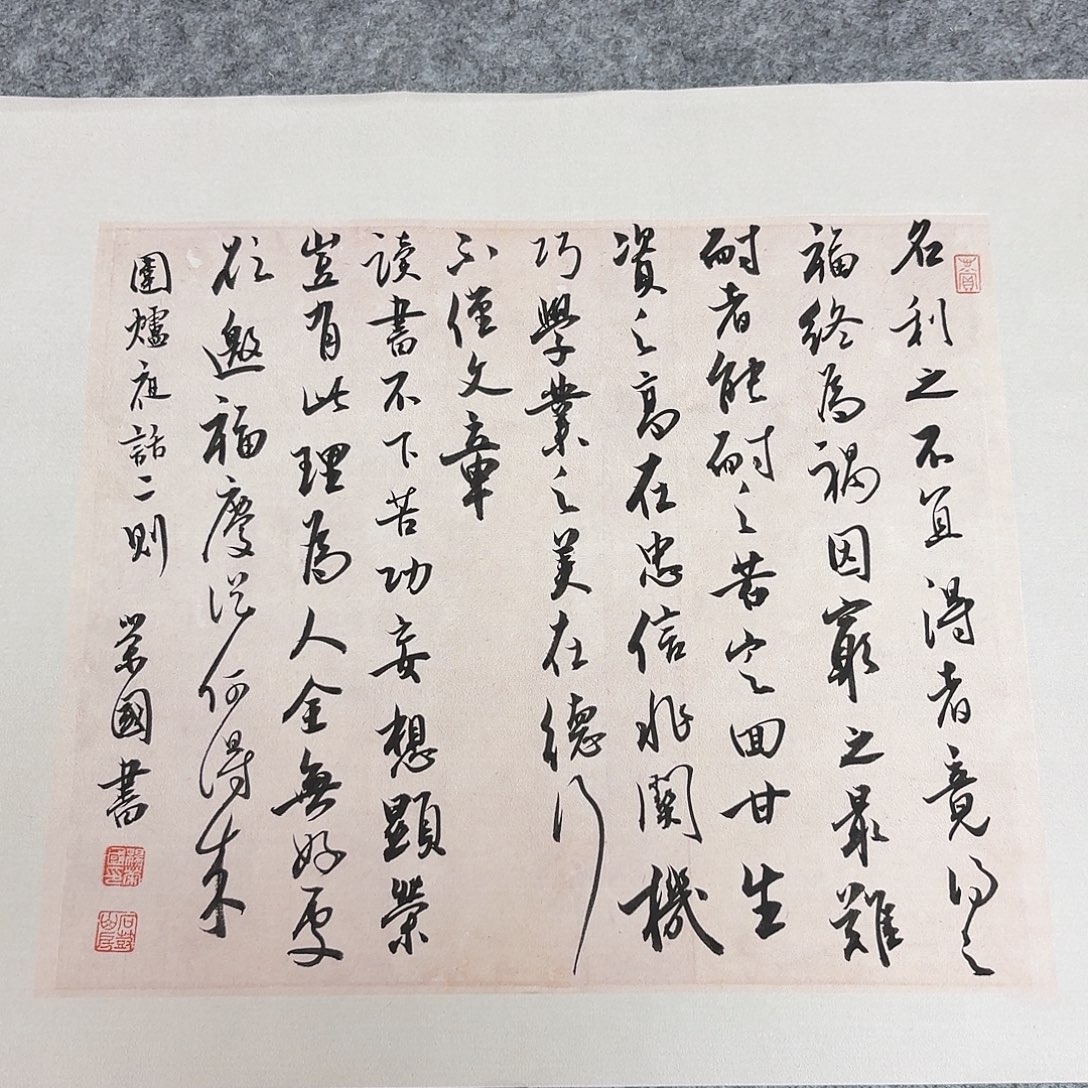 名利之不宜得者竟得之
福終為禍困窮之最難
耐者能耐之苦定回甘生
資之高在忠信非關機
巧學業之美在德行
不僅文章
讀書不下苦功妄想顯榮
豈有此理為人全無好處
欲邀福慶從何得来
圍爐夜話二則 榮國書
楊榮國印